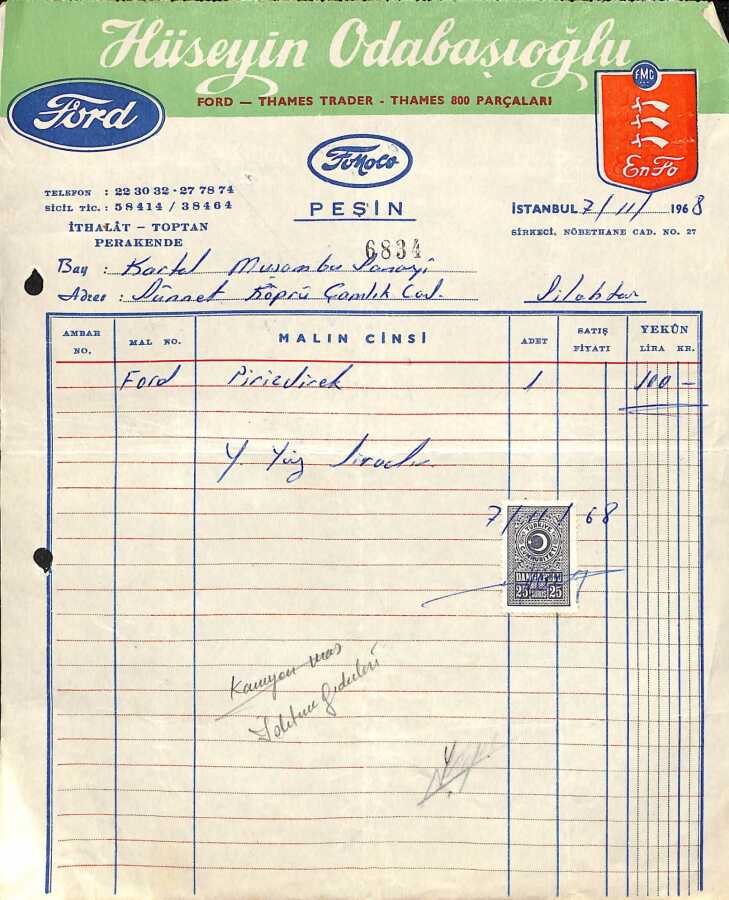 Hüseyin Odabaşıoğlu
FORD — THAMES TRADER - THAMES 800 PARÇALARI
Ford
FMC
EnFo
FoMoCo
PEŞİN
TELEFON : 22 30 32 - 27 78 74
SİCİL TİC. : 58414 / 38464
İTHALÂT — TOPTAN
PERAKENDE
İSTANBUL 7/11/1968
SİRKECİ, NÖBETHANE CAD. NO. 27
6834
Bay : Kartal Muşamba Sanayi
Adres : Sünnet Köprü Çamlık Cad. Silahdar
AMBAR NO. MAL NO. MALIN CİNSİ ADET SATIŞ FİYATI YEKÛN LİRA KR.
Ford Pirizdirek 1 100 —
Y. Yüz liradır.
7/11/68
TÜRKİYE CUMHURİYETİ
DAMGA PULU
25 KURUŞ 25
Kamyon mas
İşletme giderleri